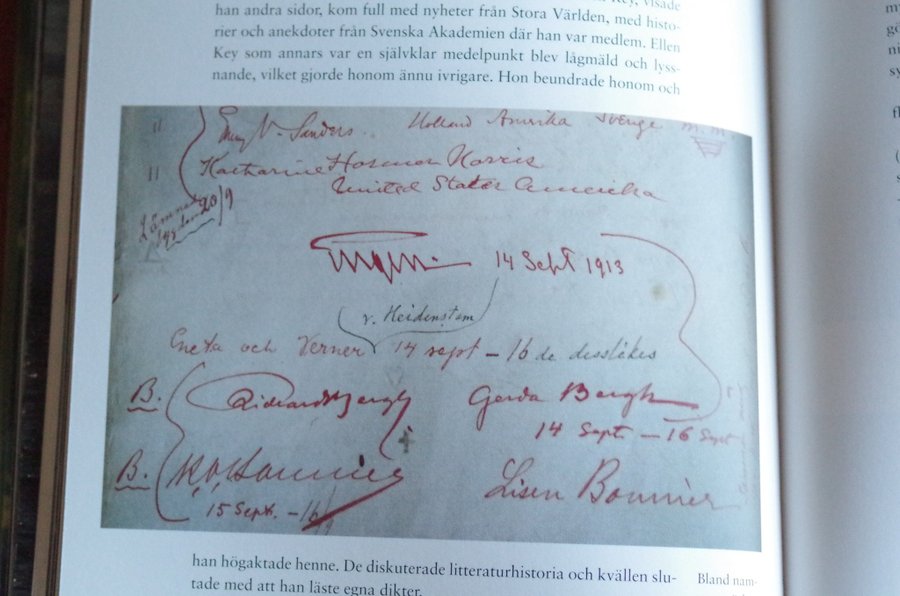 Key, visade
han andra sidor, kom full med nyheter från Stora Världen, med histo-
rier och anekdoter från Svenska Akademien där han var medlem. Ellen
Key som annars var en självklar medelpunkt blev lågmäld och lyss-
nande, vilket gjorde honom ännu ivrigare. Hon beundrade honom och
Emy V. Sanders Holland Amerika Sverige m.m
Katharine Hosmer Norris
United States America
20/9
14 Sept 1913
v. Heidenstam
Greta och Verner 14 sept – 16 de dsslikes
B. Richard Bergh Gerda Bergh
14 Sept – 16 Sept
B. K.O. Bonnier Lisen Bonnier
15 Sept. – 16/9
han högaktade henne. De diskuterade litteraturhistoria och kvällen slu-
tade med att han läste egna dikter.
Bland nam-